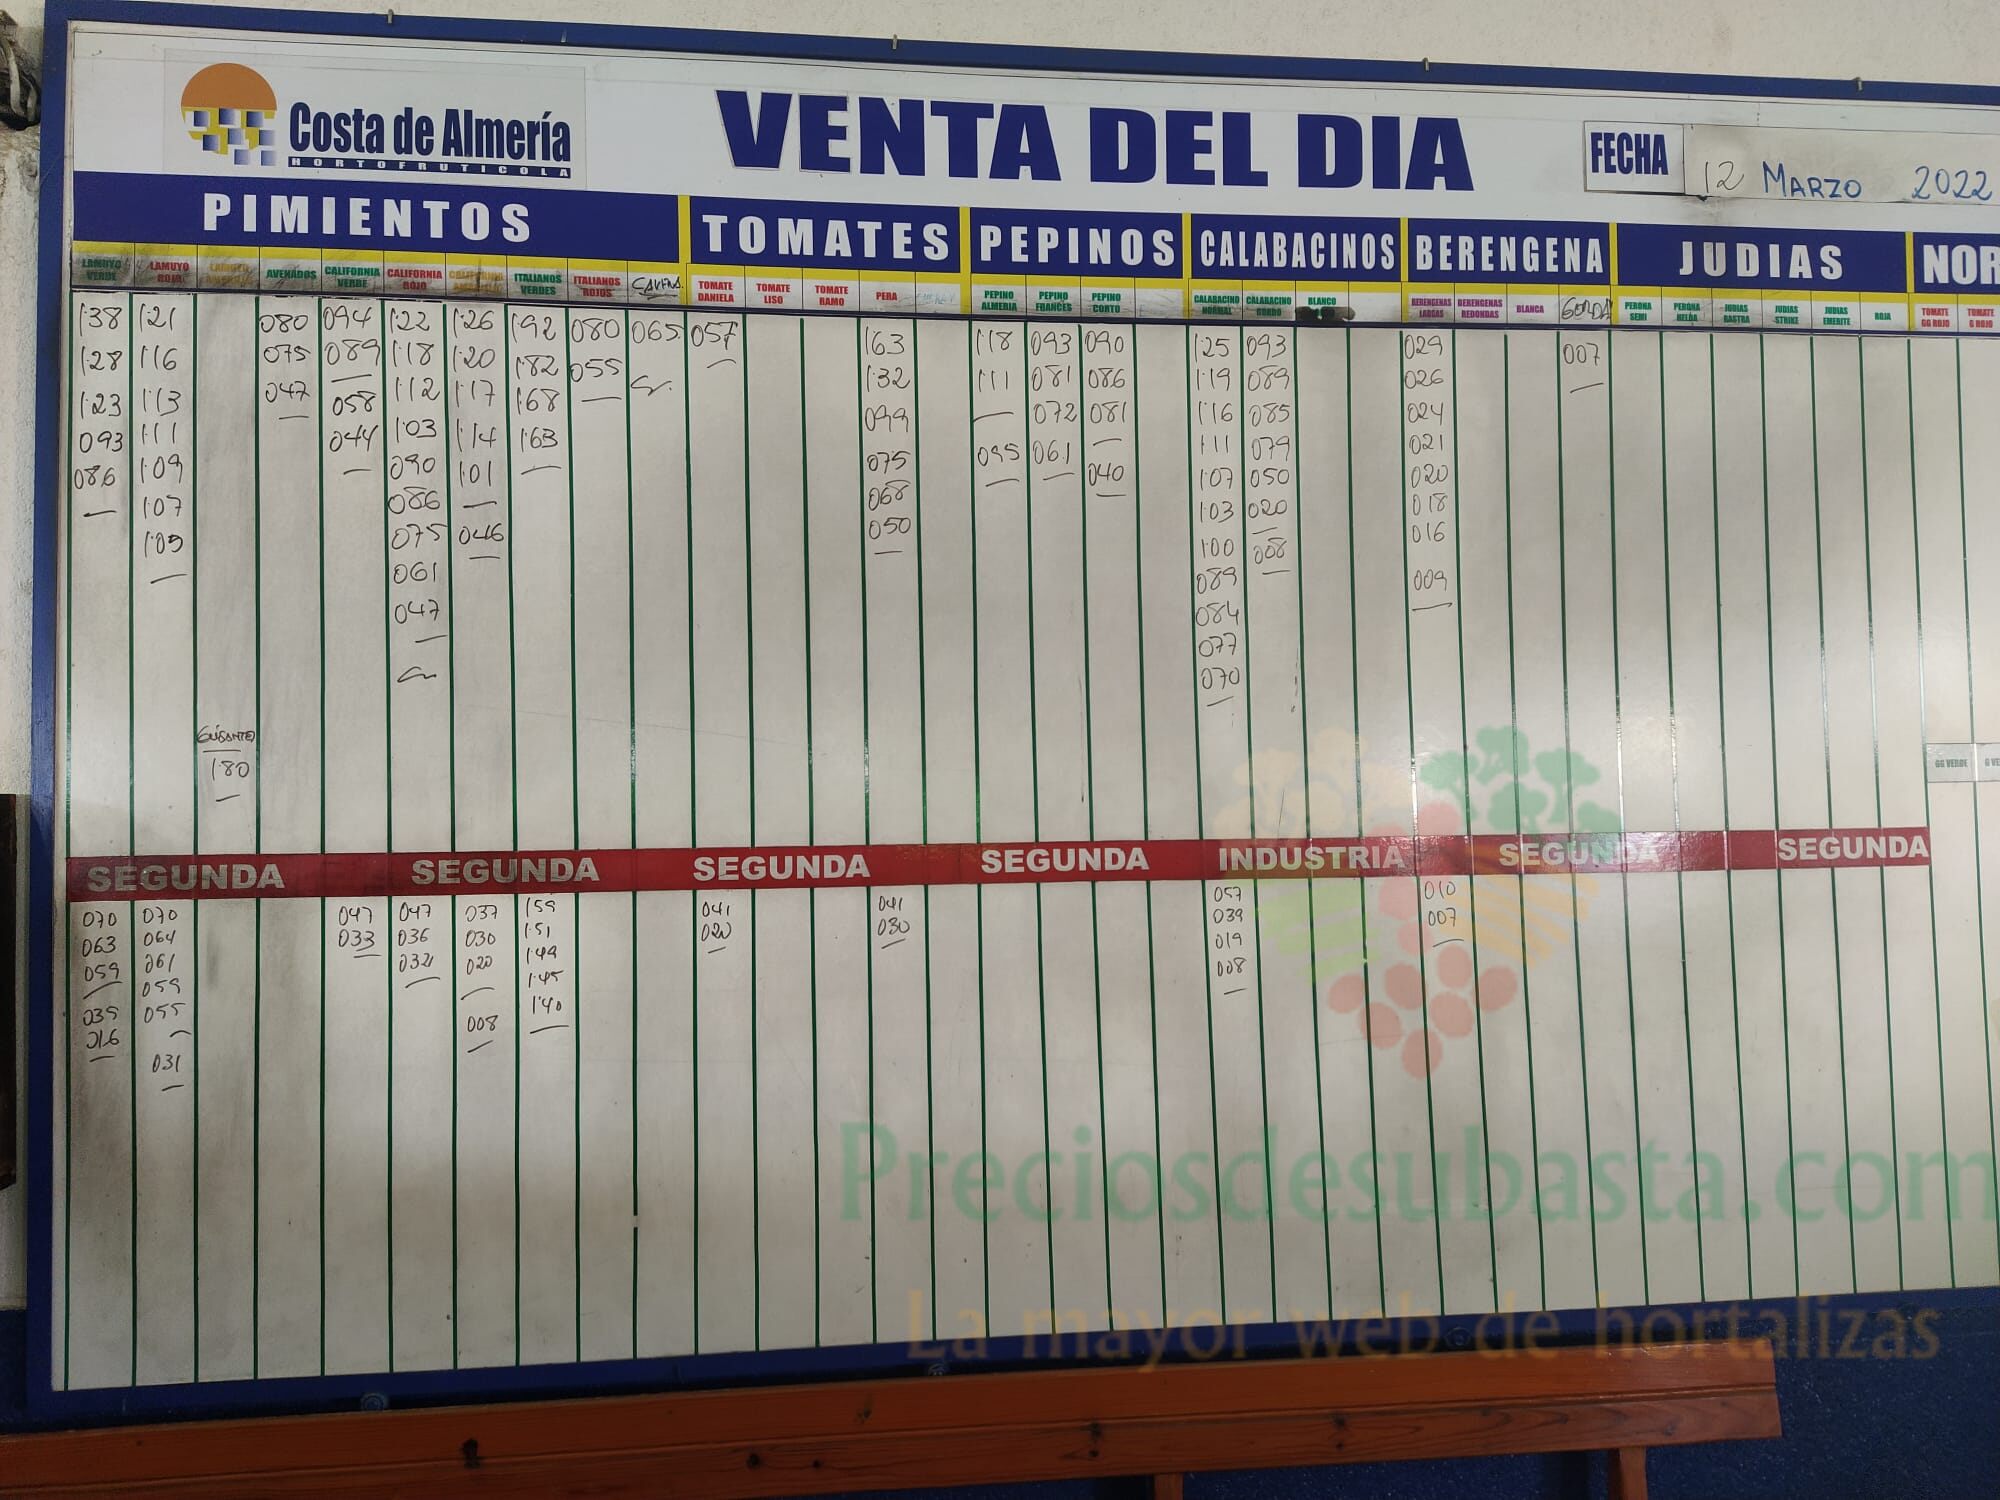 Costa de Almería
HORTOFRUTICOLA
VENTA DEL DIA
FECHA 12 MARZO 2022
PIMIENTOS TOMATES PEPINOS CALABACINOS BERENGENA JUDIAS NOR
LAMUYO VERDE
LAMUYO ROJO
LAMUYO AMARILLO
AVENADOS
CALIFORNIA VERDE
CALIFORNIA ROJO
CALIFORNIA AMARILLO
ITALIANOS VERDES
ITALIANOS ROJOS
TOMATE DANIELA
TOMATE LISO
TOMATE RAMO
PERA
PEPINO ALMERIA
PEPINO FRANCES
PEPINO CORTO
CALABACINO NORMAL
CALABACINO GORDO
BLANCO
BERENGENAS LARGAS
BERENGENAS REDONDAS
BLANCA
GORDA
PERONA SEMI
PERONA HELDA
JUDIAS RASTRA
JUDIAS STRIKE
JUDIAS EMERITE
ROJA
TOMATE GG ROJO
TOMATE G ROJO
1'38 1'21 080 094 1'22 1'26 1'92 080 065 057 1'63 1'18 093 090 1'25 093 029 007
1'28 1'16 075 089 1'18 1'20 1'82 055 1'32 1'11 081 086 1'19 089 026
1'23 1'13 047 058 1'12 1'17 1'68 099 072 081 1'16 085 024
093 1'11 044 1'03 1'14 1'63 075 095 061 1'11 079 021
086 1'09 090 1'01 068 040 1'07 050 020
1'07 086 050 1'03 020 018
1'05 075 046 1'00 008 016
061 089 009
047 084
077
070
GIGANTE
1'80
GG VERDE G VE
SEGUNDA SEGUNDA SEGUNDA SEGUNDA INDUSTRIA SEGUNDA SEGUNDA
070 070 047 047 037 1'59 041 041 057 010
063 064 033 036 030 1'51 020 030 039 007
059 061 032 020 1'49 019
059 1'45 008
035 055 008 1'40
016
031
Preciosdesubasta.com
La mayor web de hortalizas